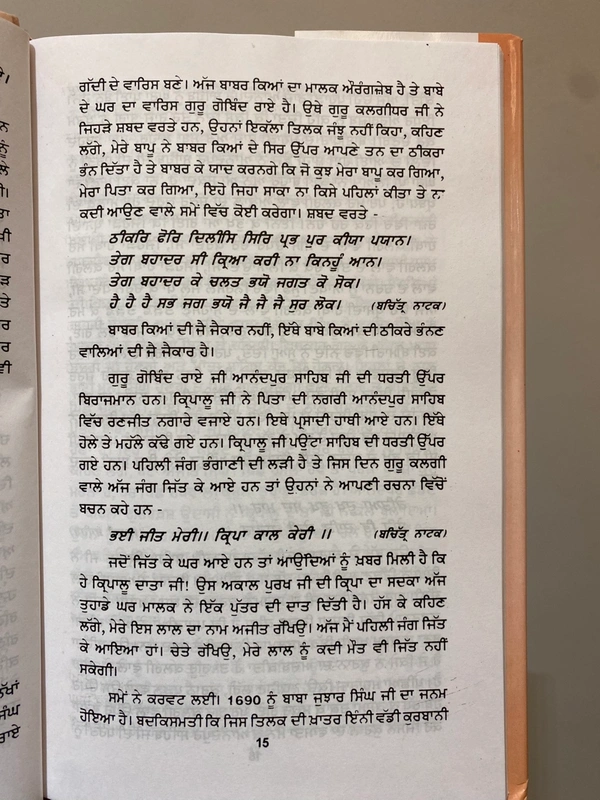 ਗੱਦੀ ਦੇ ਵਾਰਿਸ ਬਣੇ। ਅੱਜ ਬਾਬਰ ਕਿਆਂ ਦਾ ਮਾਲਕ ਔਰੰਗਜ਼ੇਬ ਹੈ ਤੇ ਬਾਬੇ
ਦੇ ਘਰ ਦਾ ਵਾਰਿਸ ਗੁਰੂ ਗੋਬਿੰਦ ਰਾਏ ਹੈ। ਉਥੇ ਗੁਰੂ ਕਲਗੀਧਰ ਜੀ ਨੇ
ਜਿਹੜੇ ਸ਼ਬਦ ਵਰਤੇ ਹਨ, ਉਹਨਾਂ ਇਕੱਲਾ ਤਿਲਕ ਜੰਞੂ ਨਹੀਂ ਕਿਹਾ, ਕਹਿਣ
ਲੱਗੇ, ਮੇਰੇ ਬਾਪੂ ਨੇ ਬਾਬਰ ਕਿਆਂ ਦੇ ਸਿਰ ਉੱਪਰ ਆਪਣੇ ਤਨ ਦਾ ਠੀਕਰਾ
ਭੰਨ ਦਿੱਤਾ ਹੈ ਤੇ ਬਾਬਰ ਕੇ ਯਾਦ ਕਰਨਗੇ ਕਿ ਜੋ ਕੁਝ ਮੇਰਾ ਬਾਪੂ ਕਰ ਗਿਆ,
ਮੇਰਾ ਪਿਤਾ ਕਰ ਗਿਆ, ਇਹੋ ਜਿਹਾ ਸਾਕਾ ਨਾ ਕਿਸੇ ਪਹਿਲਾਂ ਕੀਤਾ ਤੇ ਨਾ
ਕਦੀ ਆਉਣ ਵਾਲੇ ਸਮੇਂ ਵਿੱਚ ਕੋਈ ਕਰੇਗਾ। ਸ਼ਬਦ ਵਰਤੇ -
ਠੀਕਰਿ ਫੋਰਿ ਦਿਲੀਸਿ ਸਿਰਿ ਪ੍ਰਭ ਪੁਰ ਕੀਯਾ ਪਯਾਨ।
ਤੇਗ ਬਹਾਦਰ ਸੀ ਕ੍ਰਿਆ ਕਰੀ ਨਾ ਕਿਨਹੂੰ ਆਨ।
ਤੇਗ ਬਹਾਦਰ ਕੇ ਚਲਤ ਭਯੋ ਜਗਤ ਕੋ ਸੋਕ।
ਹੈ ਹੈ ਹੈ ਸਭ ਜਗ ਭਯੋ ਜੈ ਜੈ ਜੈ ਸੁਰ ਲੋਕ। (ਬਚਿੱਤ੍ਰ ਨਾਟਕ)
ਬਾਬਰ ਕਿਆਂ ਦੀ ਜੈ ਜੈਕਾਰ ਨਹੀਂ, ਇੱਥੇ ਬਾਬੇ ਕਿਆਂ ਦੀ ਠੀਕਰੇ ਭੰਨਣ
ਵਾਲਿਆਂ ਦੀ ਜੈ ਜੈਕਾਰ ਹੈ।
ਗੁਰੂ ਗੋਬਿੰਦ ਰਾਏ ਜੀ ਆਨੰਦਪੁਰ ਸਾਹਿਬ ਜੀ ਦੀ ਧਰਤੀ ਉੱਪਰ
ਬਿਰਾਜਮਾਨ ਹਨ। ਕ੍ਰਿਪਾਲੂ ਜੀ ਨੇ ਪਿਤਾ ਦੀ ਨਗਰੀ ਆਨੰਦਪੁਰ ਸਾਹਿਬ
ਵਿੱਚ ਰਣਜੀਤ ਨਗਾਰੇ ਵਜਾਏ ਹਨ। ਇਥੇ ਪ੍ਰਸਾਦੀ ਹਾਥੀ ਆਏ ਹਨ। ਇੱਥੇ
ਹੋਲੇ ਤੇ ਮਹੱਲੇ ਕੱਢੇ ਗਏ ਹਨ। ਕ੍ਰਿਪਾਲੂ ਜੀ ਪਉਂਟਾ ਸਾਹਿਬ ਦੀ ਧਰਤੀ ਉੱਪਰ
ਗਏ ਹਨ। ਪਹਿਲੀ ਜੰਗ ਭੰਗਾਣੀ ਦੀ ਲੜੀ ਹੈ ਤੇ ਜਿਸ ਦਿਨ ਗੁਰੂ ਕਲਗੀ
ਵਾਲੇ ਅੱਜ ਜੰਗ ਜਿੱਤ ਕੇ ਆਏ ਹਨ ਤਾਂ ਉਹਨਾਂ ਨੇ ਆਪਣੀ ਰਚਨਾ ਵਿੱਚੋਂ
ਬਚਨ ਕਹੇ ਹਨ -
ਭਈ ਜੀਤ ਮੇਰੀ॥ ਕ੍ਰਿਪਾ ਕਾਲ ਕੇਰੀ ॥ (ਬਚਿੱਤ੍ਰ ਨਾਟਕ)
ਜਦੋਂ ਜਿੱਤ ਕੇ ਘਰ ਆਏ ਹਨ ਤਾਂ ਆਉਂਦਿਆਂ ਨੂੰ ਖ਼ਬਰ ਮਿਲੀ ਹੈ ਕਿ
ਹੇ ਕ੍ਰਿਪਾਲੂ ਦਾਤਾ ਜੀ! ਉਸ ਅਕਾਲ ਪੁਰਖ ਜੀ ਦੀ ਕ੍ਰਿਪਾ ਦਾ ਸਦਕਾ ਅੱਜ
ਤੁਹਾਡੇ ਘਰ ਮਾਲਕ ਨੇ ਇੱਕ ਪੁੱਤਰ ਦੀ ਦਾਤ ਦਿੱਤੀ ਹੈ। ਹੱਸ ਕੇ ਕਹਿਣ
ਲੱਗੇ, ਮੇਰੇ ਇਸ ਲਾਲ ਦਾ ਨਾਮ ਅਜੀਤ ਰੱਖਿਓ। ਅੱਜ ਮੈਂ ਪਹਿਲੀ ਜੰਗ ਜਿੱਤ
ਕੇ ਆਇਆ ਹਾਂ। ਚੇਤੇ ਰੱਖਿਓ, ਮੇਰੇ ਲਾਲ ਨੂੰ ਕਦੀ ਮੌਤ ਵੀ ਜਿੱਤ ਨਹੀਂ
ਸਕੇਗੀ।
ਸਮੇਂ ਨੇ ਕਰਵਟ ਲਈ। 1690 ਨੂੰ ਬਾਬਾ ਜੁਝਾਰ ਸਿੰਘ ਜੀ ਦਾ ਜਨਮ
ਹੋਇਆ ਹੈ। ਬਦਕਿਸਮਤੀ ਕਿ ਜਿਸ ਤਿਲਕ ਦੀ ਖ਼ਾਤਰ ਇੰਨੀ ਵੱਡੀ ਕੁਰਬਾਨੀ
15